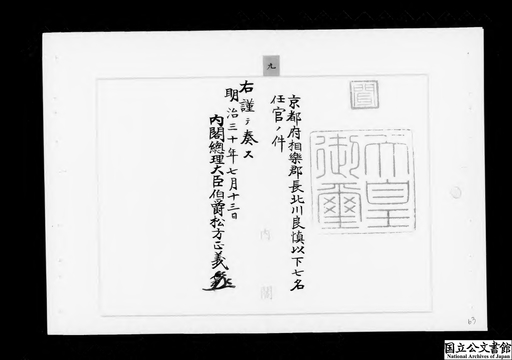 九
聞
天皇
御璽
京都府相樂郡長北川良愼以下七名
任官ノ件
右謹テ奏ス
明治三十年七月十三日
内閣總理大臣伯爵松方正義
内閣
63
国立公文書館
National Archives of Japan